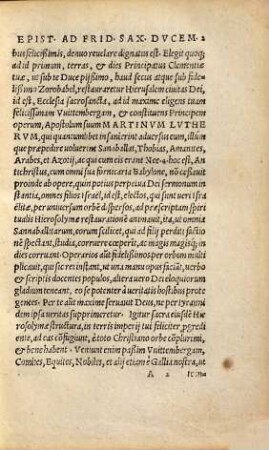 EPIST. AD FRID. SAX. DVCEM. 2
bus felicissimis, denuo revelare dignatus est. Elegit quoq;
ad id primam, terras, & dies Principatus Clementiæ
tuæ, ut sub te Duce pijssimo, haud secus atque sub fide-
lissimo Zorobabel, restauraretur Hierusalem ciuitas Dei,
id est, Ecclesia sacrosancta, ad id maxime elegens tuam
felicissimam Vuittembergam, & constituens Principem
operum, Apostolum suum MARTINVM LVTHE
RVM, qui quamuumlibet insanirint aduersus eum, illum-
que præpedire voluerint Sanaballat, Thobias, Amantes,
Arabes, et Azotij, ac cum eis errant Nee-4. hoc est, An
tichristus, cum omnis sua fornicaria Babylone, nõ cessauit
proinde ab opere, quin potius perpetua Dei sermonum in
stantia, omnes filios Israël, id est, electos, qui sunt veri Isra
elitæ, uniuersum in orbe dispersos, ad præscriptam sporti
tualis Hierosolymæ restaurationem animauit, ita, ut omnia
Sannaballitarum, eorum scilicet, qui ad filij perditi factio
nẽ spectant, studia, corruere cœperit, ac magis magisq; in
dies corruant. Operarios aũt fidelissimos per orbem mul
tiplicauit, quæ res instant, ut una manu opus faciãt, verbo
& scriptis docentes populos, altera uero Dei eloquiorum
gladium teneant, eo potenter à veritatis hostibus prote
gentes. Per te aũt maxime seruauit Deus, ne per tyranni
dem ipsa veritas supprimeretur. Igitur sacra eiusdẽ Hie
rosolymæ structura, in terris imperij tui feliciter pgredi
ente, ad eas cõfugiunt, è toto Christiano orbe cõplurimi,
& bene habent. Veniunt enim passim Vuittembergam,
Comites, Equites, Nobiles, et alij etiam è Gallia nostra, ut